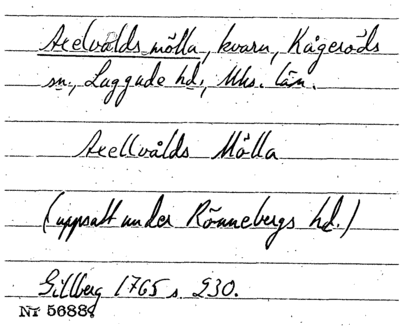 Axelvålds mölla, kvarn, Kågeröds
sn., Luggude hd., Mhs. län.
Axellvålds Mölla
(uppsatt under Rönnebergs hd.)
Gillberg 1765 s. 230.
Nr 5688